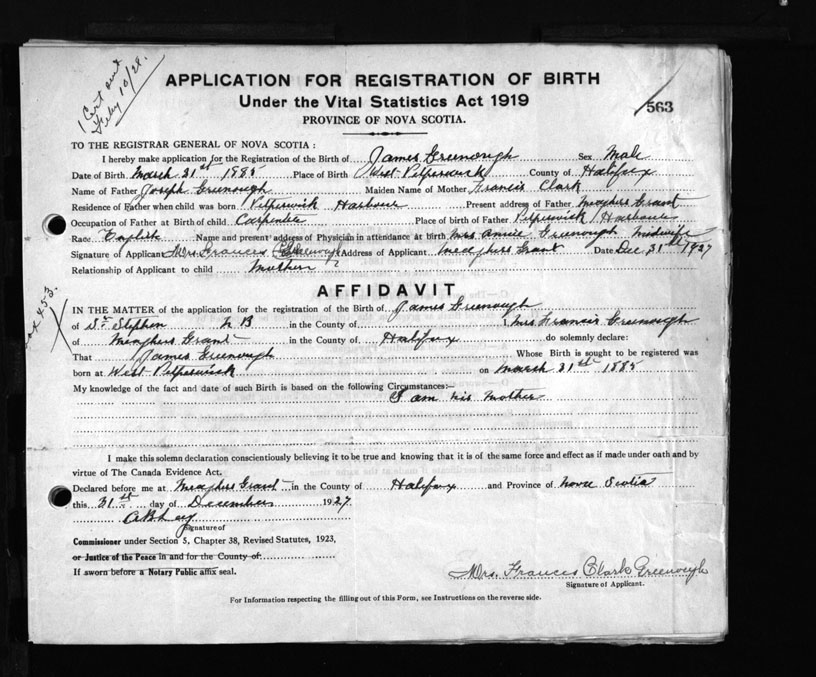 1 Cert out
Feby 10/28.
APPLICATION FOR REGISTRATION OF BIRTH
Under the Vital Statistics Act 1919
563
PROVINCE OF NOVA SCOTIA.
TO THE REGISTRAR GENERAL OF NOVA SCOTIA :
I hereby make application for the Registration of the Birth of James Greenough Sex Male
Date of Birth March 31st 1885 Place of Birth West Petpeswick County of Halifax
Name of Father Joseph Greenough Maiden Name of Mother Francis Clark
Residence of Father when child was born Petpeswick Harbour Present address of Father Meaghers Grant
Occupation of Father at Birth of child Carpenter Place of birth of Father Petpeswick Harbour
Race English Name and present address of Physician in attendance at birth Mrs Annie Greenough Midwife
Signature of Applicant Mrs Frances Greenough Address of Applicant Meaghers Grant Date Dec 31st 1927
Relationship of Applicant to child Mother
AFFIDAVIT
IN THE MATTER of the application for the registration of the Birth of James Greenough
of St Stephen N B in the County of I, Mrs Francis Greenough
of Meaghers Grant in the County of Halifax do solemnly declare:
That James Greenough Whose Birth is sought to be registered was
born at West Petpeswick on March 31st 1885
My knowledge of the fact and date of such Birth is based on the following Circumstances:—
I am his Mother
I make this solemn declaration conscientiously believing it to be true and knowing that it is of the same force and effect as if made under oath and by
virtue of The Canada Evidence Act.
Declared before me at Meaghers Grant in the County of Halifax and Province of Nova Scotia
this 31st day of December 1927
Signature of
Commissioner under Section 5, Chapter 38, Revised Statutes, 1923,
or Justice of the Peace in and for the County of
If sworn before a Notary Public affix seal.
Mrs. Frances Clark Greenough
Signature of Applicant.
For Information respecting the filling out of this Form, see Instructions on the reverse side.